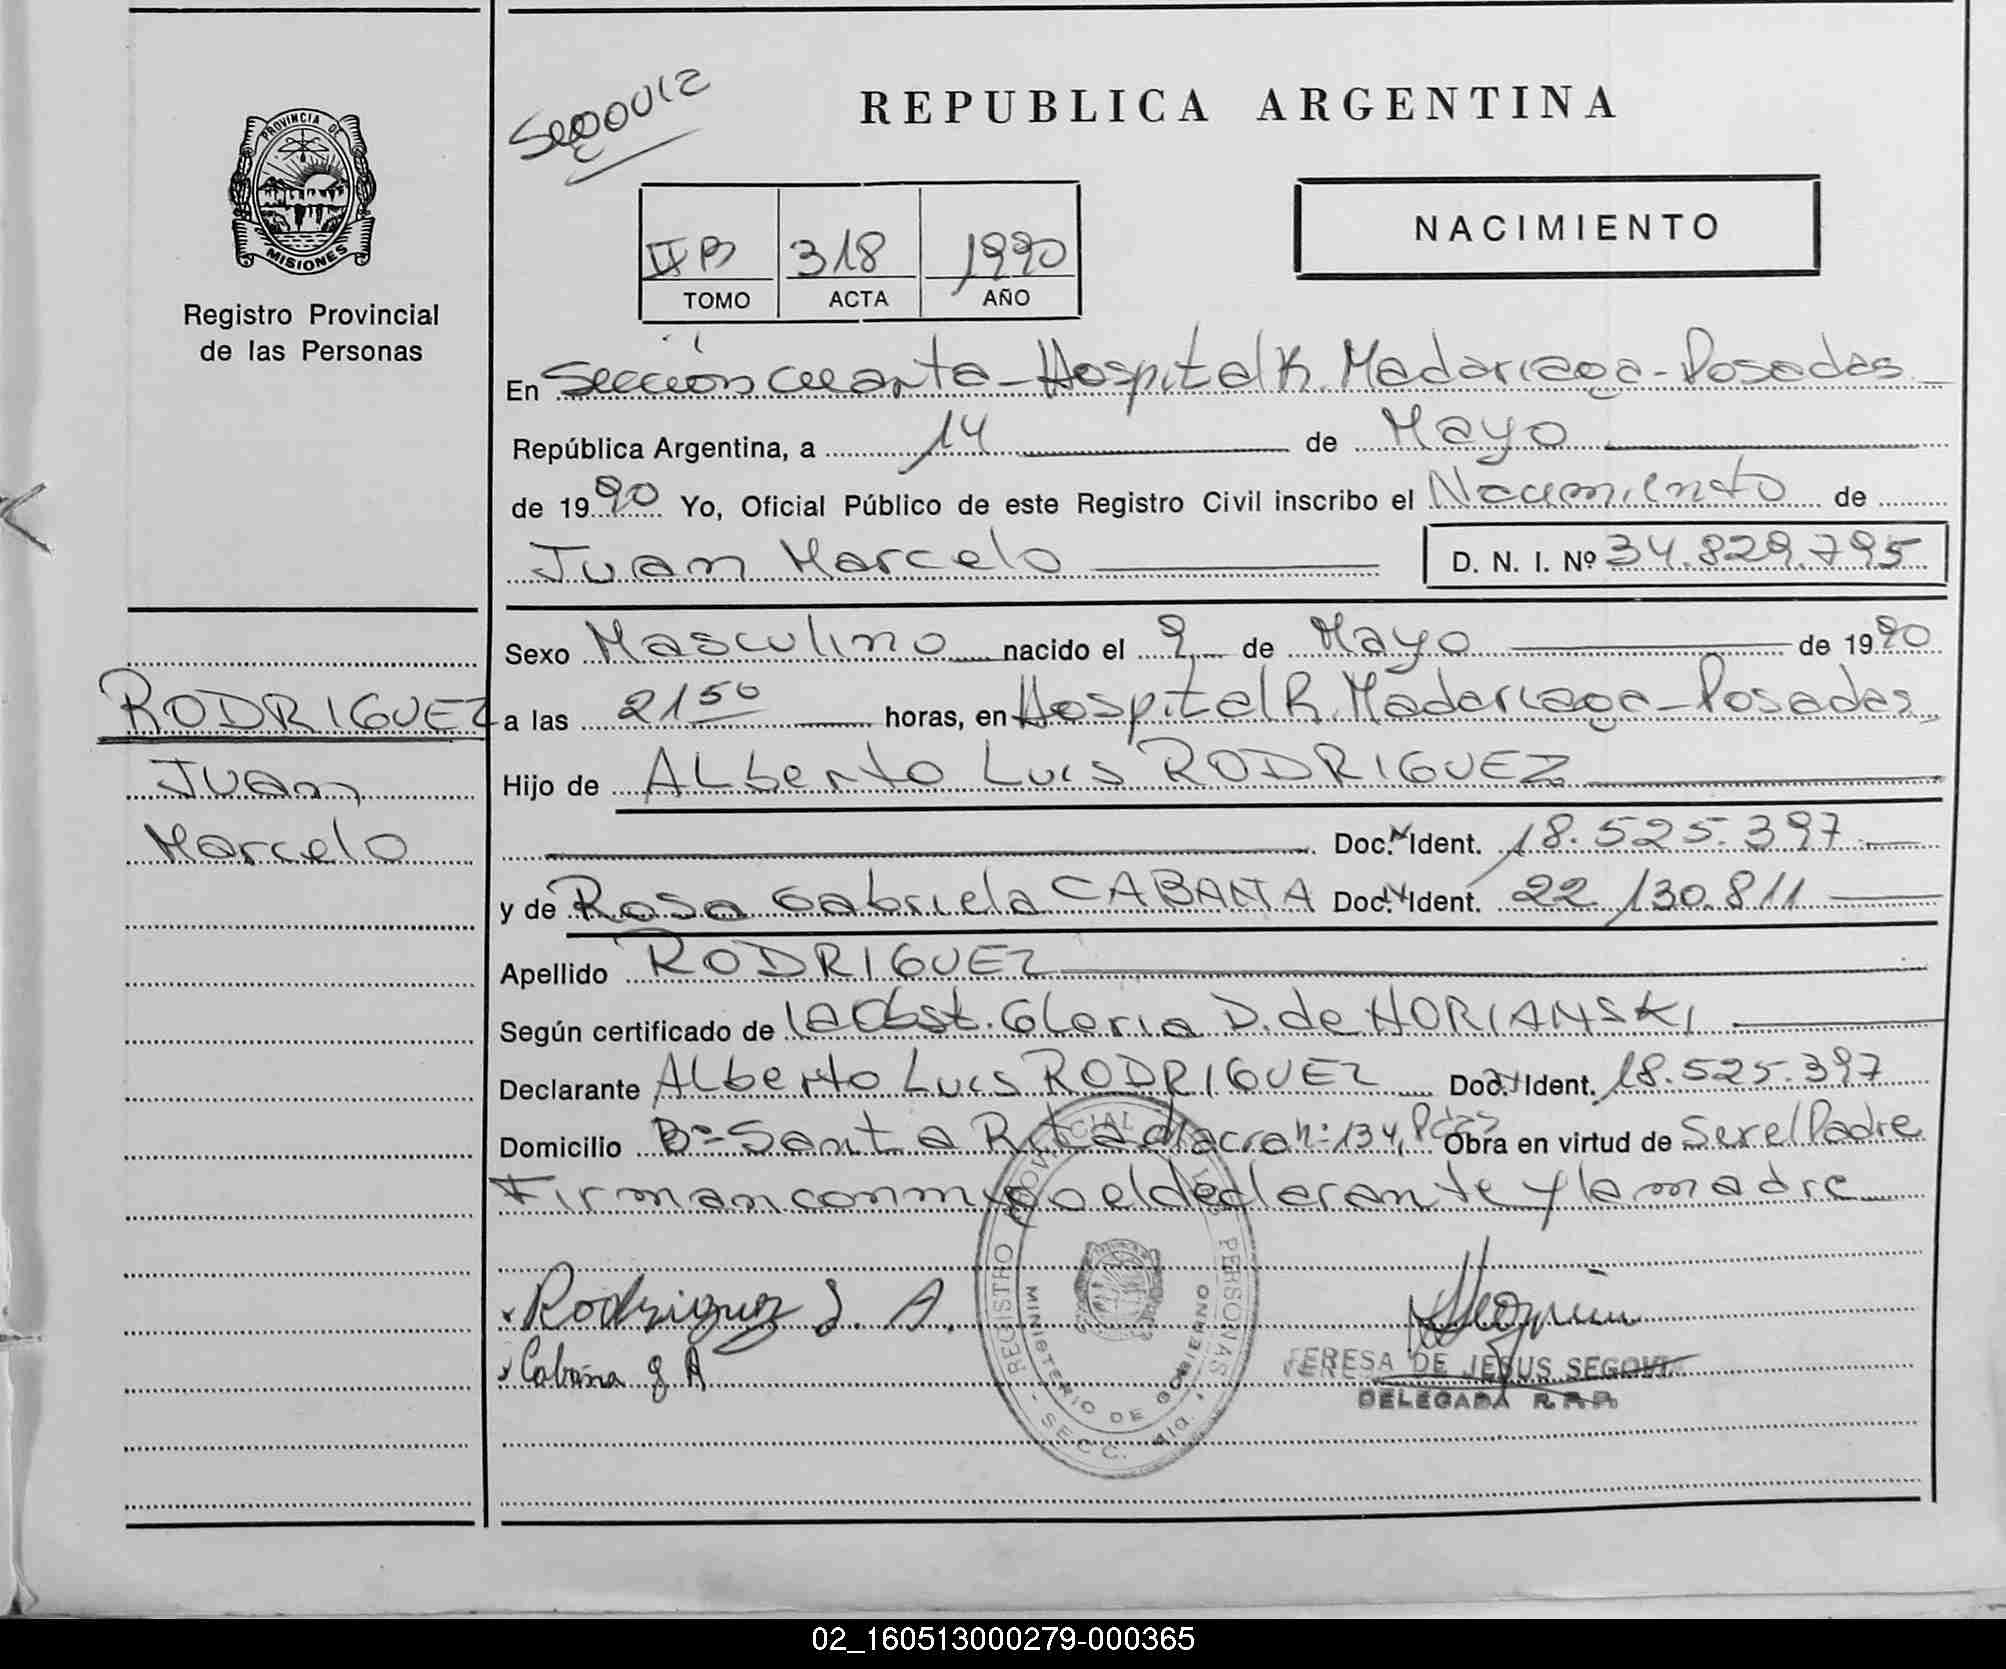 REPUBLICA ARGENTINA
NACIMIENTO
PROVINCIA DE
MISIONES
Registro Provincial
de las Personas
II B 318 1990
TOMO ACTA AÑO
En Sección cuarta - Hospital R. Madariaga - Posadas
República Argentina, a 14 de Mayo
de 1990 Yo, Oficial Público de este Registro Civil inscribo el Nacimiento de
Juan Marcelo D. N. I. Nº 34.829.795
Sexo Masculino nacido el 9 de Mayo de 1990
a las 21 50 horas, en Hospital R. Madariaga - Posadas
Hijo de ALberto Luis RODRIGUEZ
Doc. N Ident. 18.525.397
y de Rosa Gabriela CABAÑA Doc. N Ident. 22.130.811
Apellido RODRIGUEZ
Según certificado de la Obst. Gloria D. de HORIANSKI
Declarante ALberto Luis RODRIGUEZ Doc. N Ident. 18.525.397
Domicilio Bº Santa Rita chacra nº 134, Pdas Obra en virtud de Ser el Padre
Firman conmigo el declarante y la madre
RODRIGUEZ
Juan
Marcelo
x Rodriguez L. A.
x Cabaña g R
TERESA DE JESUS SEGOVIA
DELEGADA R.P.P.
REGISTRO PROVINCIAL DE LAS PERSONAS
MINISTERIO DE GOBIERNO
SECC. 4ta.
02_160513000279-000365